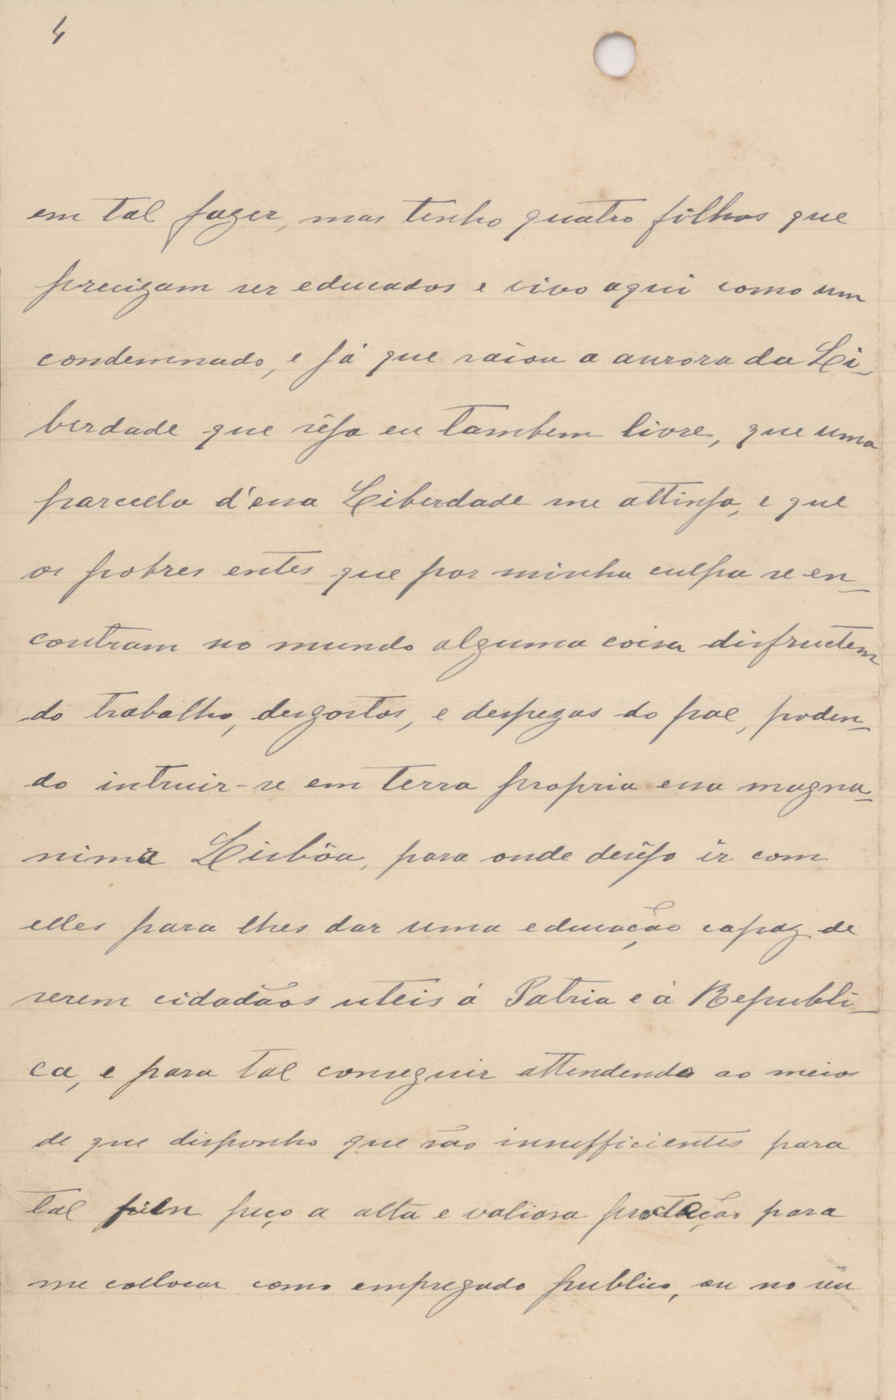 4
em tal fazer, mas tenho quatro filhos que
precizam ser educados e vivo aqui como um
condemnado, e já que raiou a aurora da Li-
berdade que sêja eu tambem livre, que uma
parcella d'essa Liberdade me attinja, e que
os pobres entes que por minha culpa se en-
contram no mundo alguma coisa disfructem
do trabalho, desgostos, e despezas do pae, poden-
do intruir-se em terra propria essa magna-
nima Lisbôa, para onde desêjo ir com
elles para lhes dar uma educação capaz de
serem cidadãos uteis á Patria e á Republi-
ca, e para tal conseguir attendendo ao meios
de que disponho que são insufficientes para
tal fim peço a alta e valiosa protecção para
me collocar como empregado publico, ou no seu